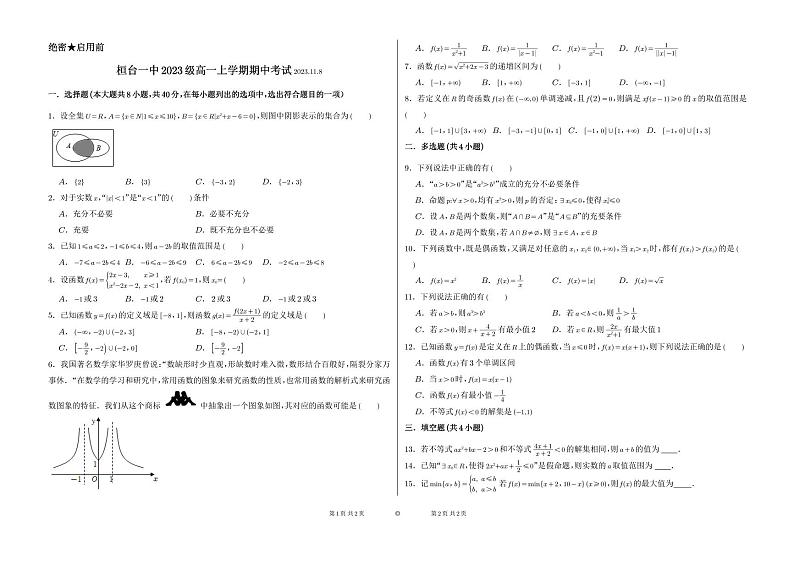 绝密★启用前
桓台一中 2023 级高一上学期期中考试 2023.11.8
一．选择题 (本大题共 8 小题, 共 40 分, 在每小题列出的选项中, 选出符合题目的一项)
1．设全集 U=R，A={x∈N|1≤x≤10}，B={x∈R|x²+x−6=0}，则图中阴影表示的集合为 ( )
U
A
B
A．{2} B．{3} C．{−3, 2} D．{−2, 3}
2．对于实数 x，“|x|<1”是“x<1”的 ( ) 条件
A．充分不必要 B．必要不充分
C．充要 D．既不充分也不必要
3．已知 1≤a≤2，−1≤b≤4，则 a−2b 的取值范围是 ( )
A．−7≤a−2b≤4 B．−6≤a−2b≤9 C．6≤a−2b≤9 D．−2≤a−2b≤8
4．设函数 f(x)={2x−3, x≥1 x²−2x−2, x<1，若 f(x₀)=1，则 x₀=( )
A．−1 或 3 B．−1 或 2 C．2 或 3 D．−1 或 2 或 3
5．已知函数 y=f(x) 的定义域是 [−8, 1]，则函数 g(x)=f(2x+1)/(x+2) 的定义域是 ( )
A．(−∞, −2)∪(−2, 3] B．[−8, −2)∪(−2, 1]
C．[−9/2, −2)∪(−2, 0] D．[−9/2, −2]
6．我国著名数学家华罗庚曾说：“数缺形时少直观，形缺数时难入微，数形结合百般好，隔裂分家万
事休．”在数学的学习和研究中，常用函数的图象来研究函数的性质，也常用函数的解析式来研究函
数图象的特征．我们从这个商标 中抽象出一个图象如图，其对应的函数可能是 ( )
y
1
−1 O 1 x
A．f(x)=1/(x²+1) B．f(x)=1/|x−1| C．f(x)=1/(x²−1) D．f(x)=1/||x|−1|
7．函数 f(x)=√(x²+2x−3) 的递增区间为 ( )
A．[−1, +∞) B．[1, +∞) C．[−3, 1] D．(−∞, −1]
8．若定义在 R 的奇函数 f(x) 在 (−∞, 0) 单调递减，且 f(2)=0，则满足 xf(x−1)≥0 的 x 的取值范围是
( )
A．[−1, 1]∪[3, +∞) B．[−3, −1]∪[0, 1] C．[−1, 0]∪[1, +∞) D．[−1, 0]∪[1, 3]
二．多选题 (共 4 小题)
9．下列说法中正确的有 ( )
A．“a>b>0”是“a²>b²”成立的充分不必要条件
B．命题 p:∀x>0，均有 x²>0，则 p 的否定：∃x₀≤0，使得 x₀²≤0
C．设 A，B 是两个数集，则“A∩B=A”是“A⊆B”的充要条件
D．设 A，B 是两个数集，若 A∩B≠∅，则 ∃x∈A，x∈B
10．下列函数中，既是偶函数，又满足对任意的 x₁，x₂∈(0, +∞)，当 x₁>x₂ 时，都有 f(x₁)>f(x₂) 的是 (
)
A．f(x)=x² B．f(x)=1/x C．f(x)=|x| D．f(x)=√x
11．下列说法正确的有 ( )
A．若 a>b，则 a³>b³ B．若 a<b<0，则 1/a>1/b
C．若 x>0，则 x+4/(x+2) 有最小值 2 D．若 x∈R，则 2x/(x²+1) 有最大值 1
12．已知函数 y=f(x) 是定义在 R 上的偶函数，当 x≤0 时，f(x)=x(x+1)，则下列说法正确的是 ( )
A．函数 f(x) 有 3 个单调区间
B．当 x>0 时，f(x)=x(x−1)
C．函数 f(x) 有最小值 −1/4
D．不等式 f(x)<0 的解集是 (−1, 1)
三．填空题 (共 4 小题)
13．若不等式 ax²+bx−2>0 和不等式 (4x+1)/(x+2)<0 的解集相同，则 a+b 的值为 ____．
14．已知“∃x₀∈R，使得 2x²+ax+1/2≤0”是假命题，则实数的 a 取值范围为 ____．
15．记 min{a, b}={a, a≤b b, a>b 若 f(x)=min{x+2, 10−x} (x≥0)，则 f(x) 的最大值为____．
第 1 页 共 2 页 ◎ 第 2 页 共 2 页